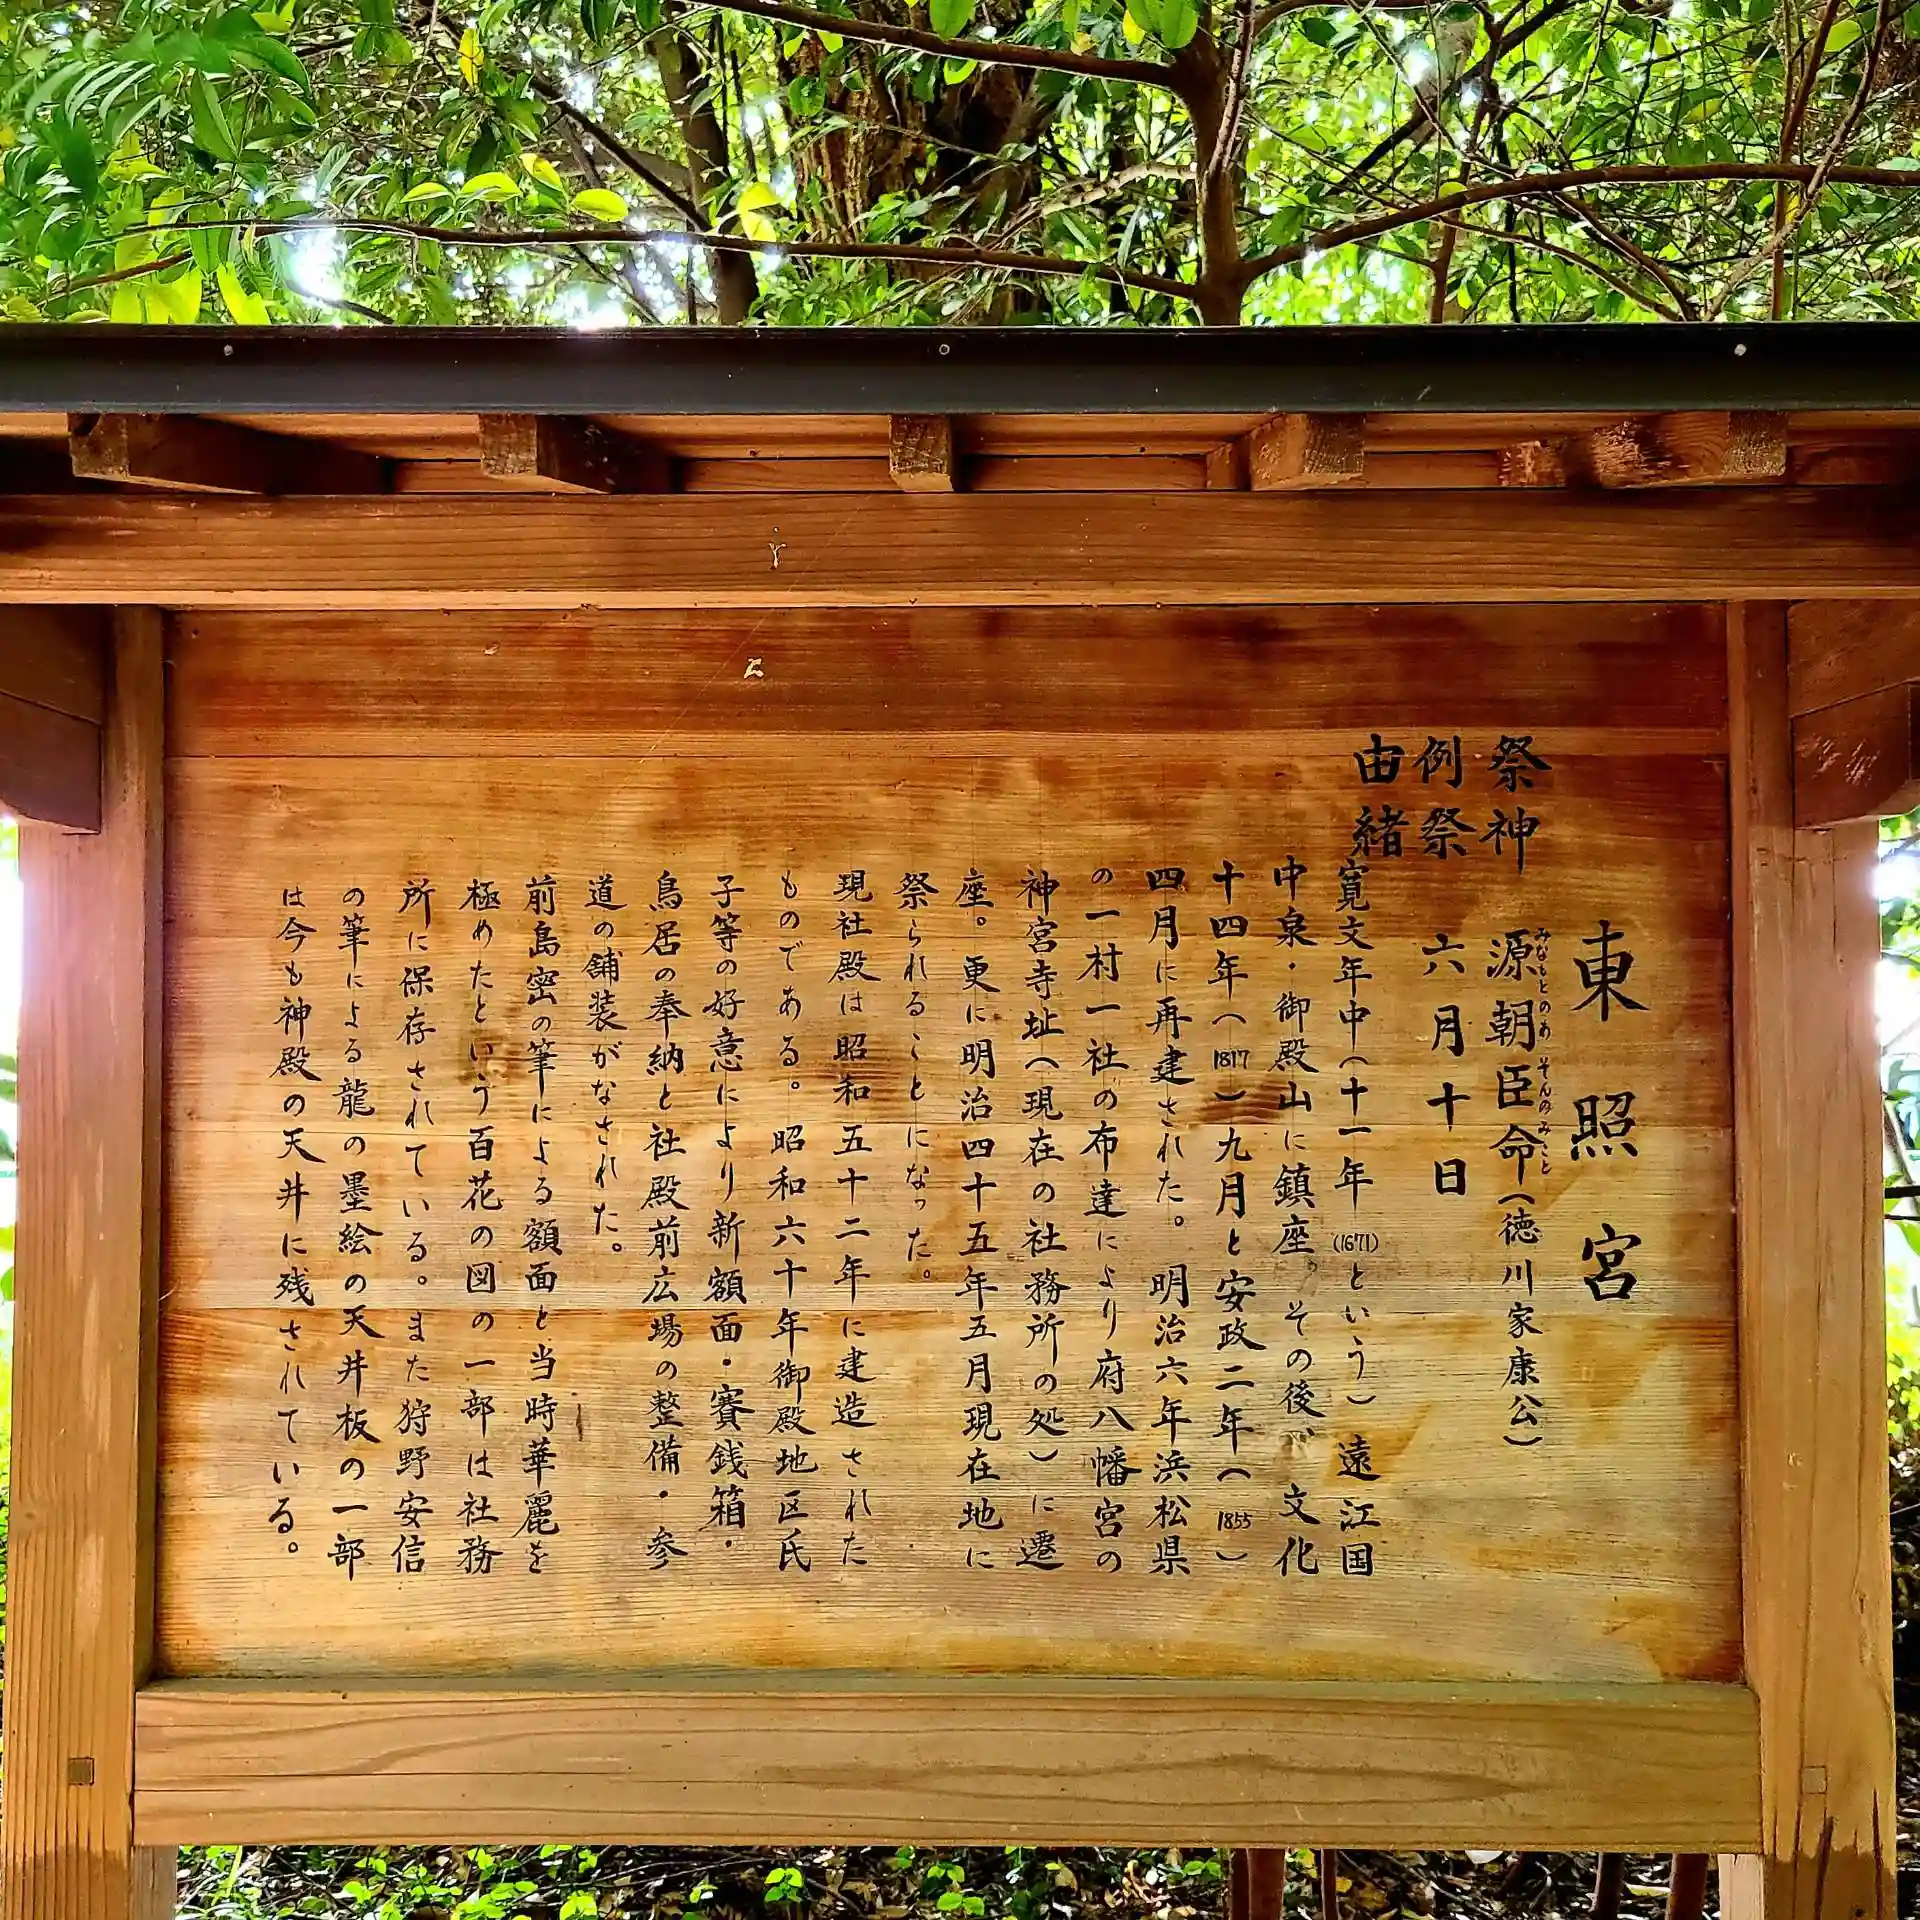 東照宮
祭神 源朝臣命(徳川家康公)
みなとのあそんのみこと
例祭 六月十日
由緒
寛文年中(十一年(1671)という)遠江国
中泉・御殿山に鎮座。その後、文化
十四年(1817)九月と安政二年(1855)
四月に再建された。明治六年浜松県
の一村一社の布達により府八幡宮の
神宮寺址(現在の社務所の処)に遷
座。更に明治四十五年五月現在地に
祭られることになった。
現社殿は昭和五十二年に建造された
ものである。昭和六十年御殿地区氏
子等の好意により新額面・賽銭箱・
鳥居の奉納と社殿前広場の整備・参
道の舗装がなされた。
前島密の筆による額面と当時華麗を
極めたという百花の図の一部は社務
所に保存されている。また狩野安信
の筆による龍の墨絵の天井板の一部
は今も神殿の天井に残されている。